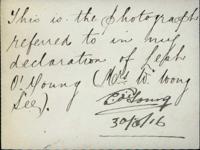 This is the photograph
referred to in my
declaration of
O'Young (Mrs W. Wong
See).
30/8/16